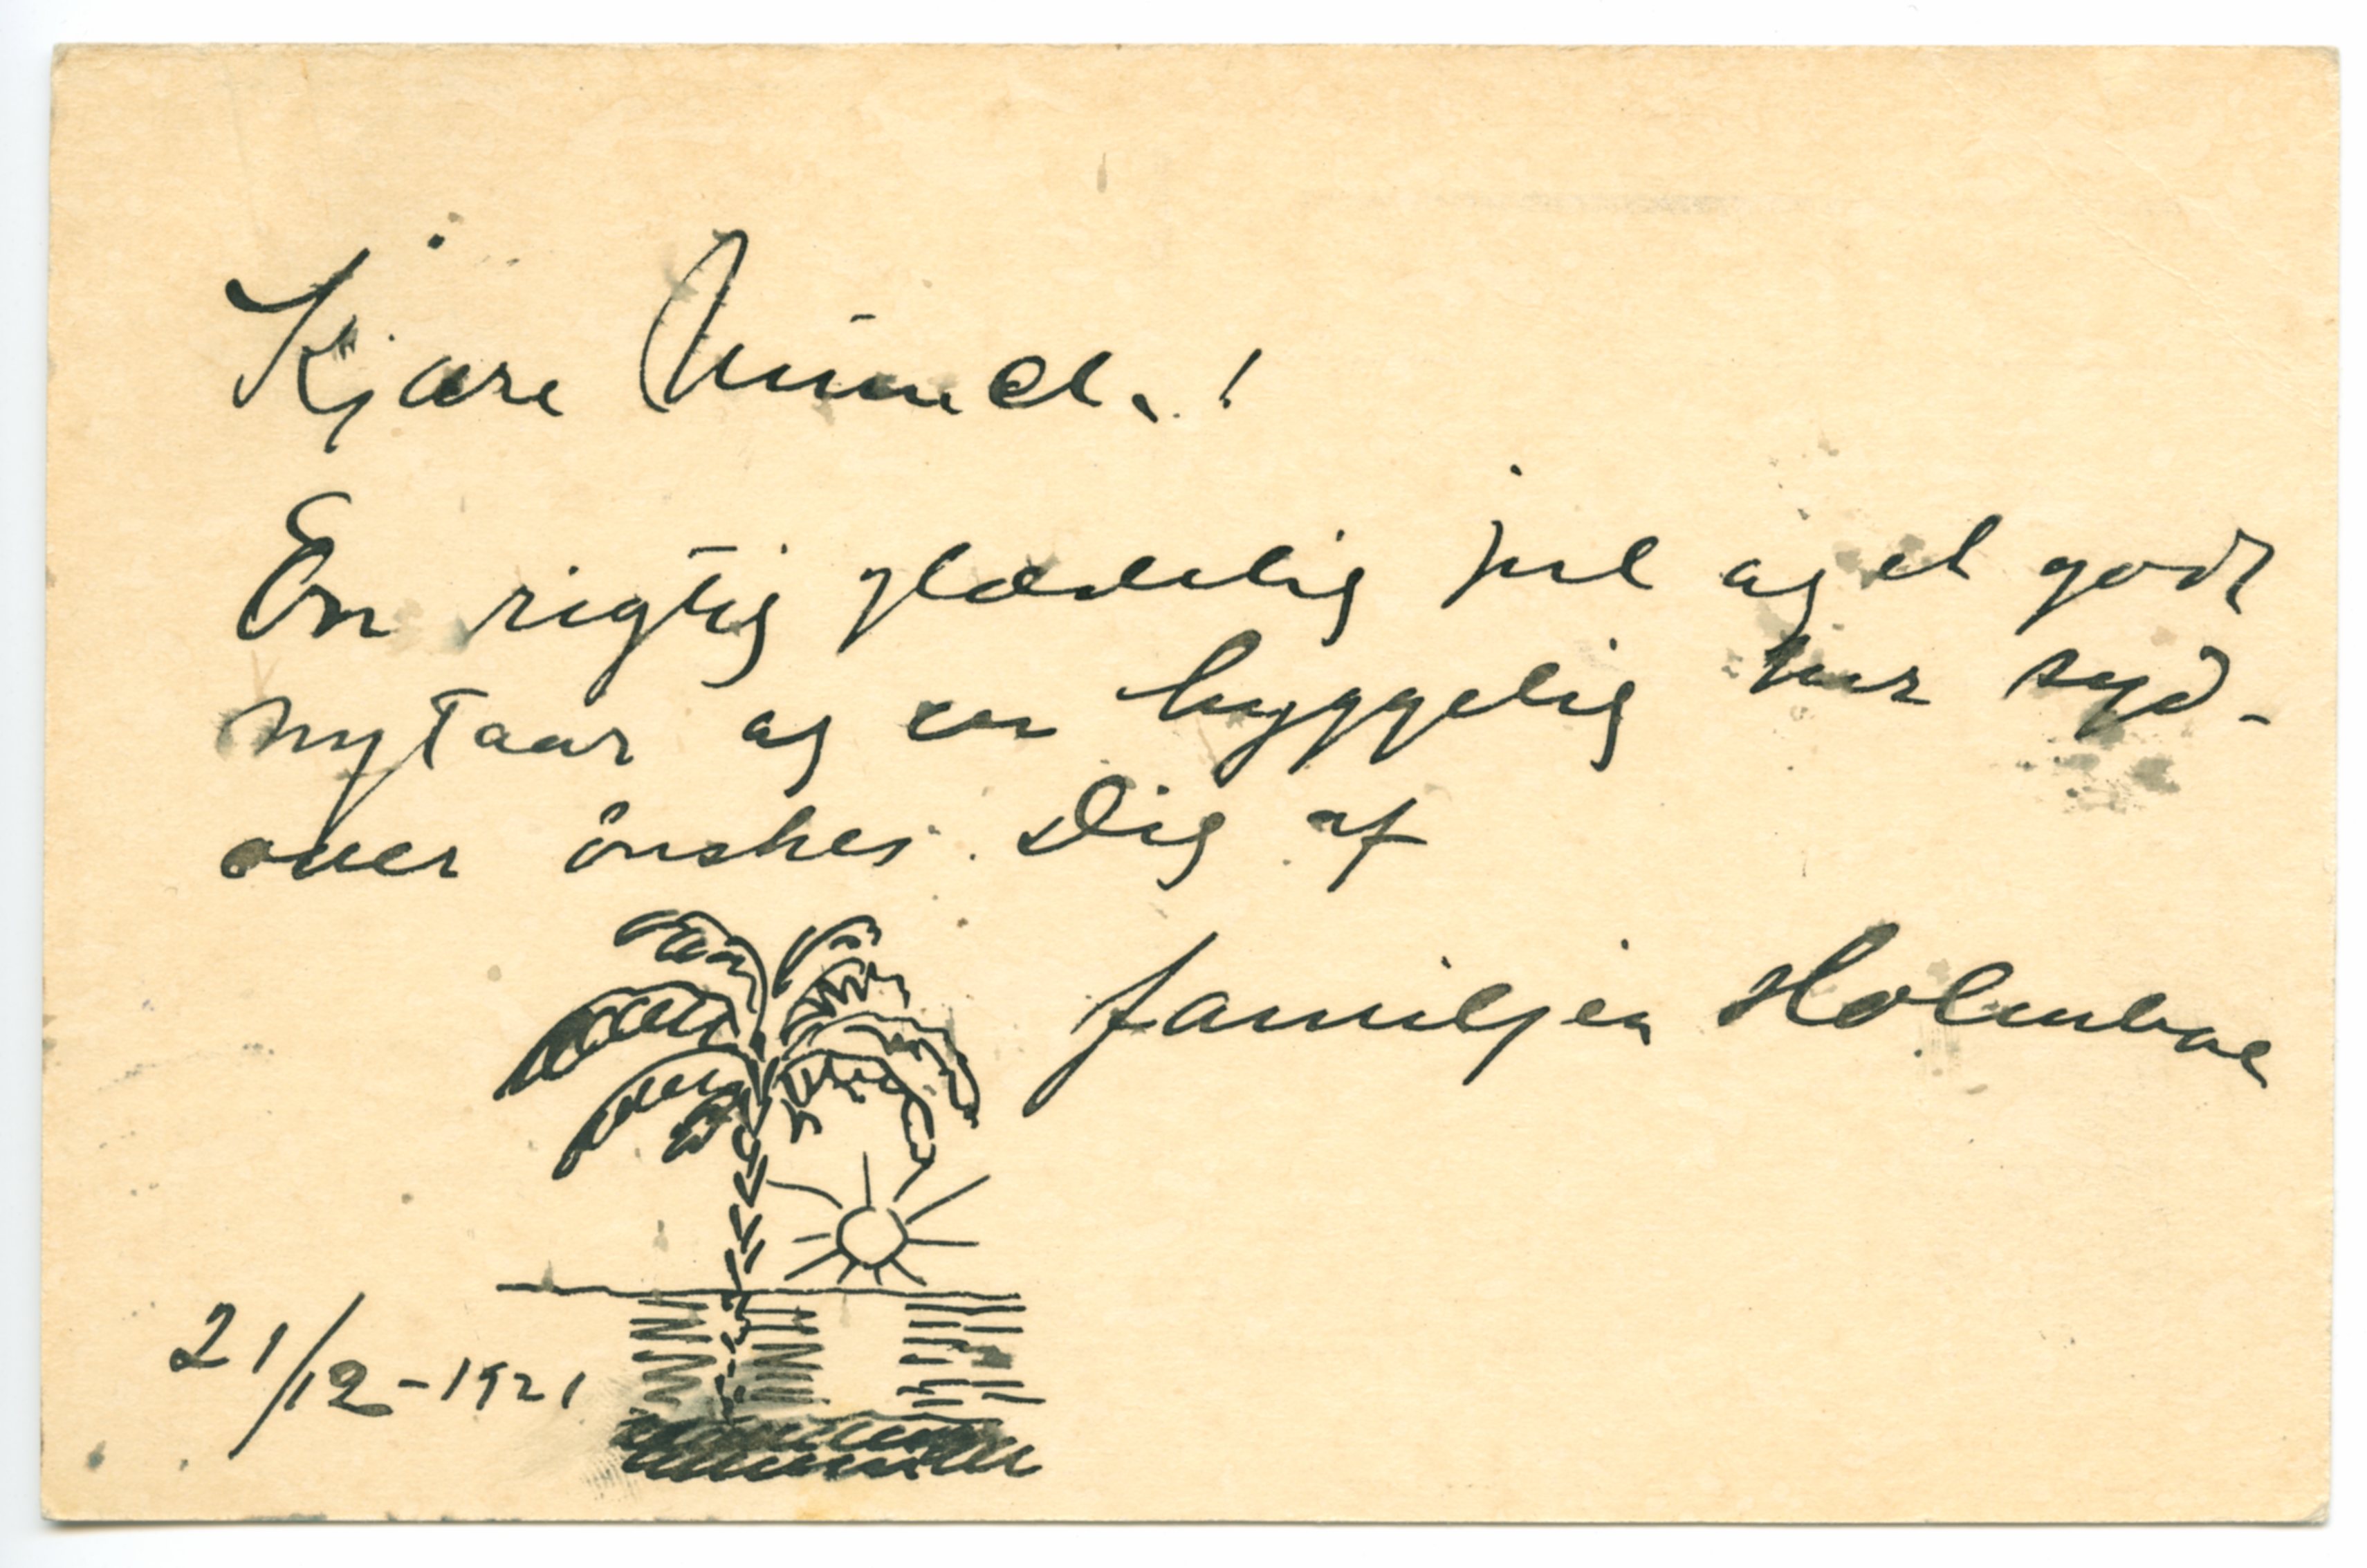 Kjære Munch!
En rigtig glædelig jul og et godt
nytaar og en hyggelig tur syd-
over önskes Dig af
familjen Holmboe
21/12-1921